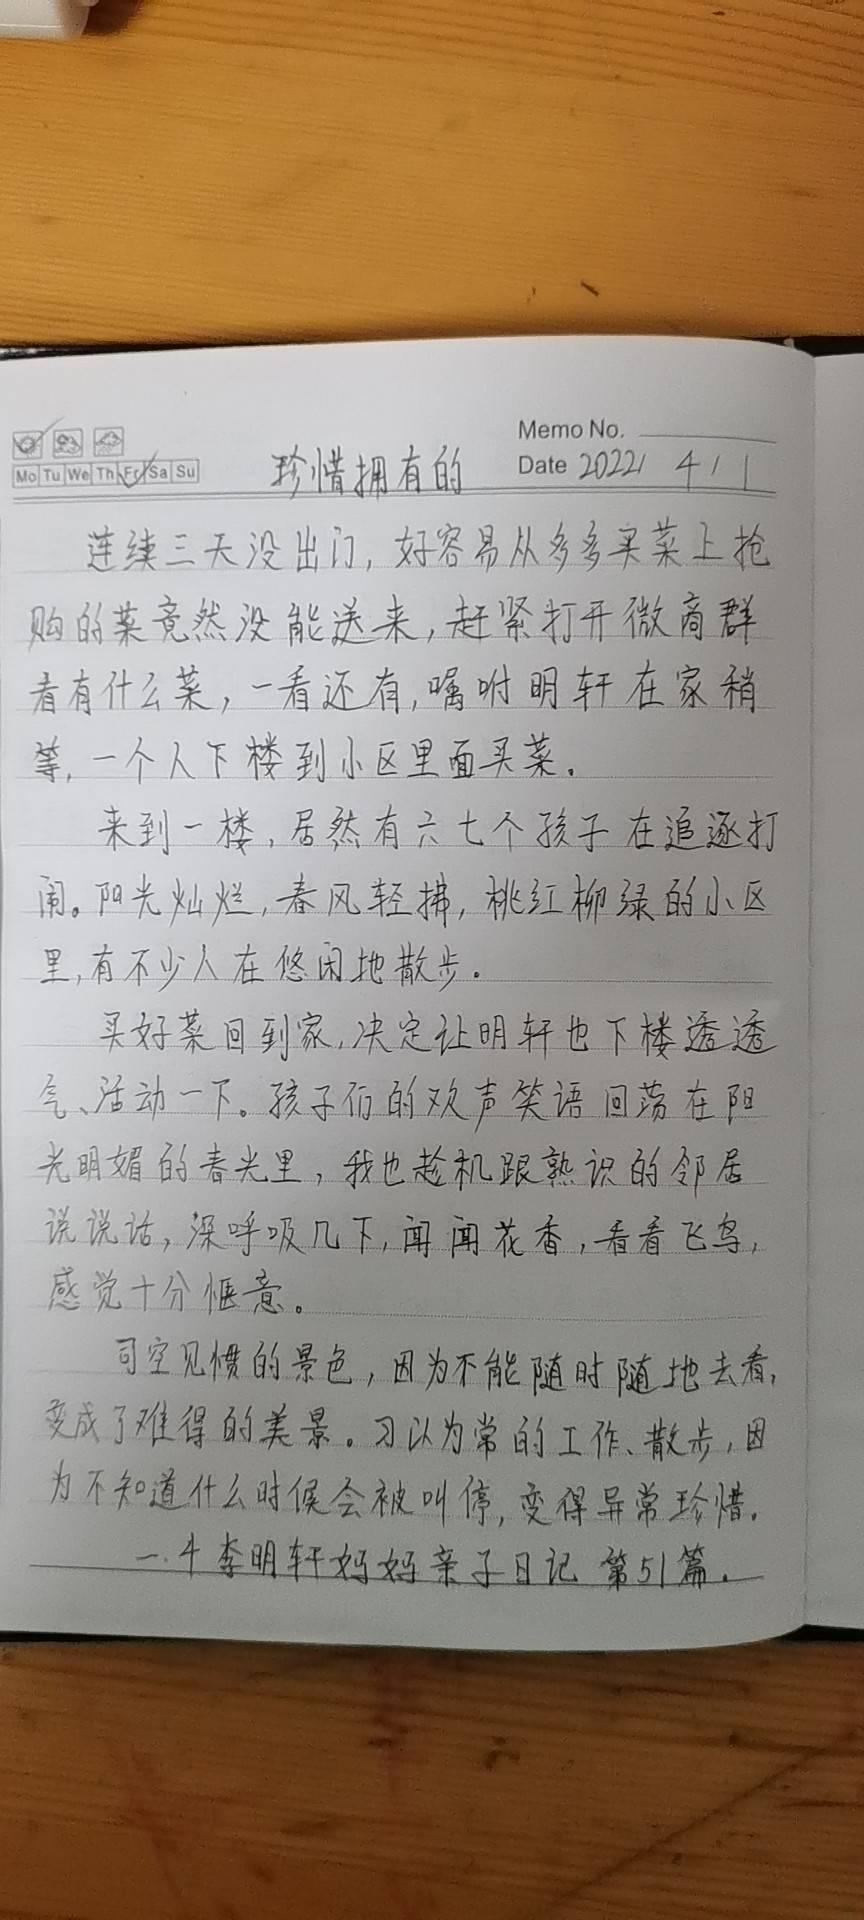 Memo No.
Mo Tu We Th Fr Sa Su
珍惜拥有的
Date 2022 4 1
连续三天没出门,好容易从多多买菜上抢
购的菜竟然没能送来,赶紧打开微商群
看有什么菜,一看还有,嘱咐明轩在家稍
等,一个人下楼到小区里面买菜。
来到一楼,居然有六七个孩子在追逐打
闹。阳光灿烂,春风轻拂,桃红柳绿的小区
里,有不少人在悠闲地散步。
买好菜回到家,决定让明轩也下楼透透
气、活动一下。孩子们的欢声笑语回荡在阳
光明媚的春光里,我也趁机跟熟识的邻居
说说话,深呼吸几下,闻闻花香,看看飞鸟,
感觉十分惬意。
司空见惯的景色,因为不能随时随地去看,
变成了难得的美景。习以为常的工作、散步,因
为不知道什么时候会被叫停,变得异常珍惜。
一.4李明轩妈妈亲子日记 第51篇.